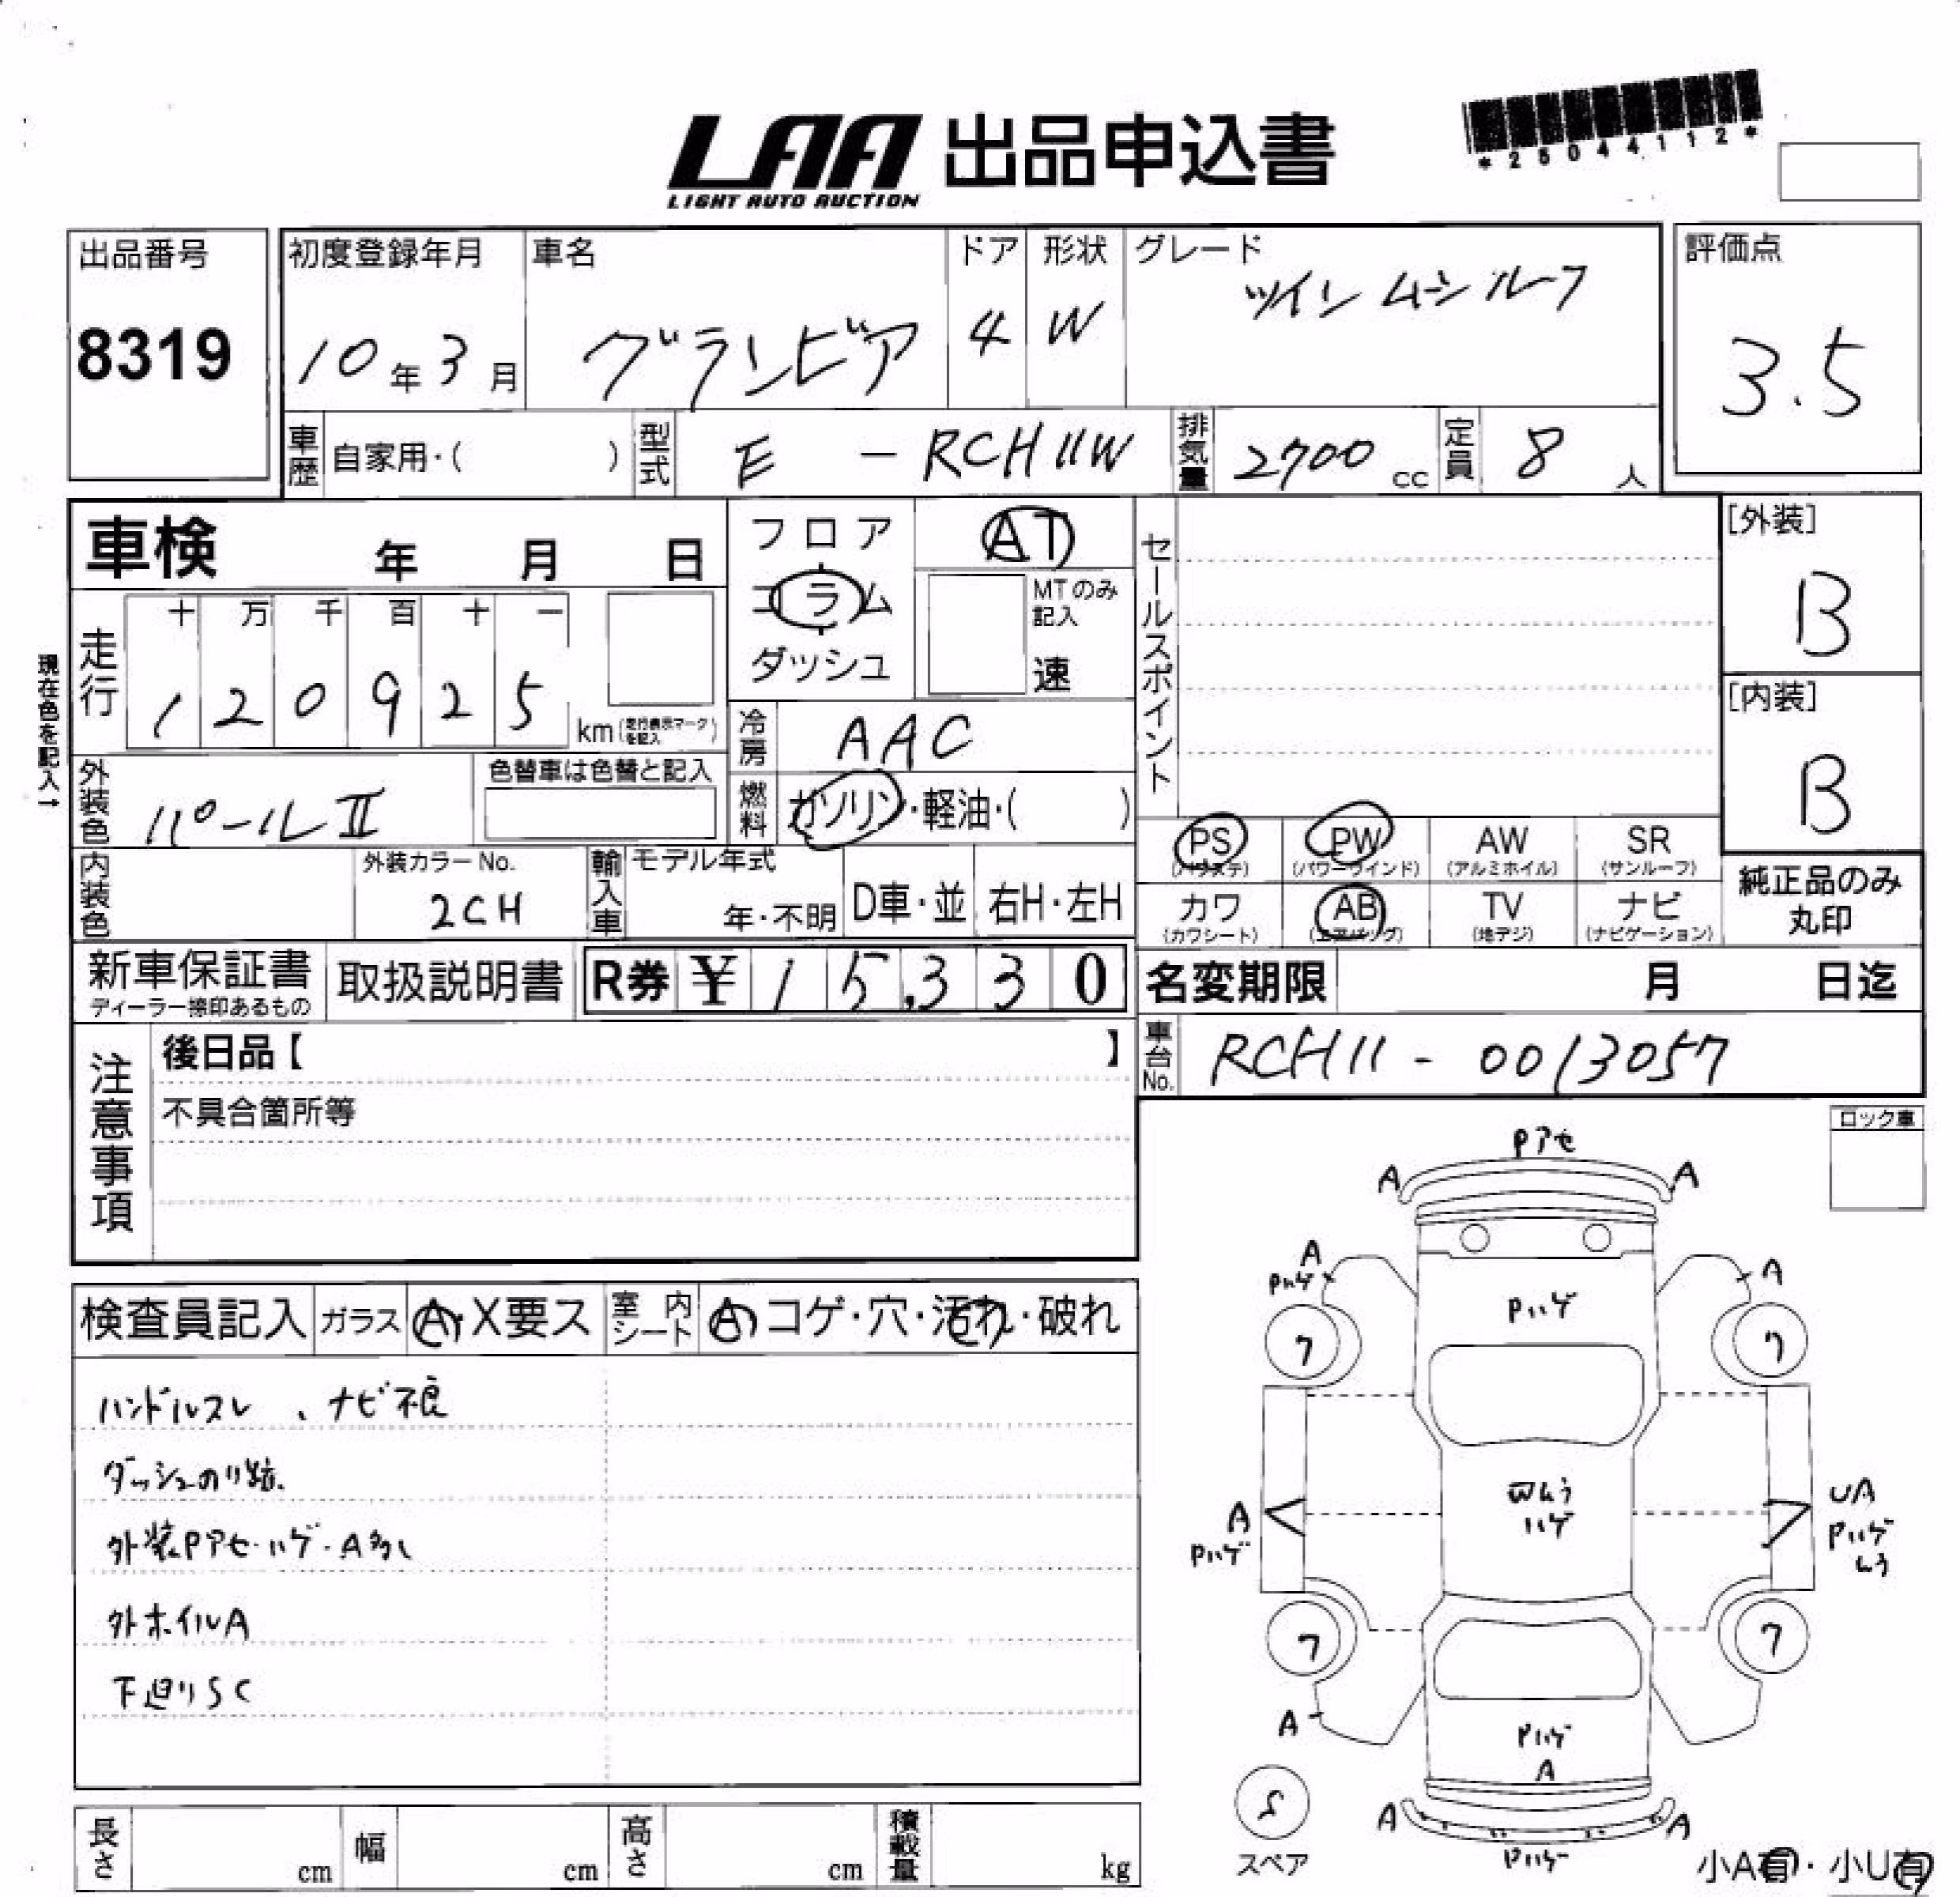 LAA 出品申込書
LIGHT AUTO AUCTION
*25044112*
出品番号
8319
初度登録年月
10年3月
車名
グランビア
ドア
4
形状
W
グレード
ツインムーンルーフ
評価点
3.5
車歴 自家用・( )
型式 E - RCH11W
排気量 2700 cc
定員 8 人
車検 年 月 日
フロア
コラム
ダッシュ
AT
MTのみ
記入
速
セールスポイント
[外装]
B
[内装]
B
現在色を記入→
走行
十 万 千 百 十 一
1 2 0 9 2 5 km (走行表示マークを記入)
冷房 AAC
外装色 パールII
色替車は色替と記入
燃料 ガソリン・軽油・( )
PS
(パワステ)
PW
(パワーウインド)
AW
(アルミホイル)
SR
(サンルーフ)
カワ
(カワシート)
AB
(エアバッグ)
TV
(地デジ)
ナビ
(ナビゲーション)
純正品のみ
丸印
内装色
外装カラーNo.
2CH
輸入車
モデル年式
年・不明
D車・並
右H・左H
新車保証書
ディーラー捺印あるもの
取扱説明書
R券 ¥ 15,330
名変期限 月 日迄
車台No. RCH11 - 0013057
注意事項
後日品【 】
不具合箇所等
ロック車
検査員記入 ガラス A・X要ス 室内シート A コゲ・穴・汚れ・破れ
ハンドルスレ、ナビ不良
ダッシュのり跡.
外装Pアセ・ハゲ・A多し
外ホイルA
下廻りSC
Pアセ
A A
A
Pハゲ
A
Pハゲ
ワ ワ
A
Pハゲ
ハゲ
UA
Pハゲ
しう
ワ ワ
A
Pハゲ
A
S
スペア
A A
Pハゲ
小A有・小U有
長さ cm
幅 cm
高さ cm
積載量 kg